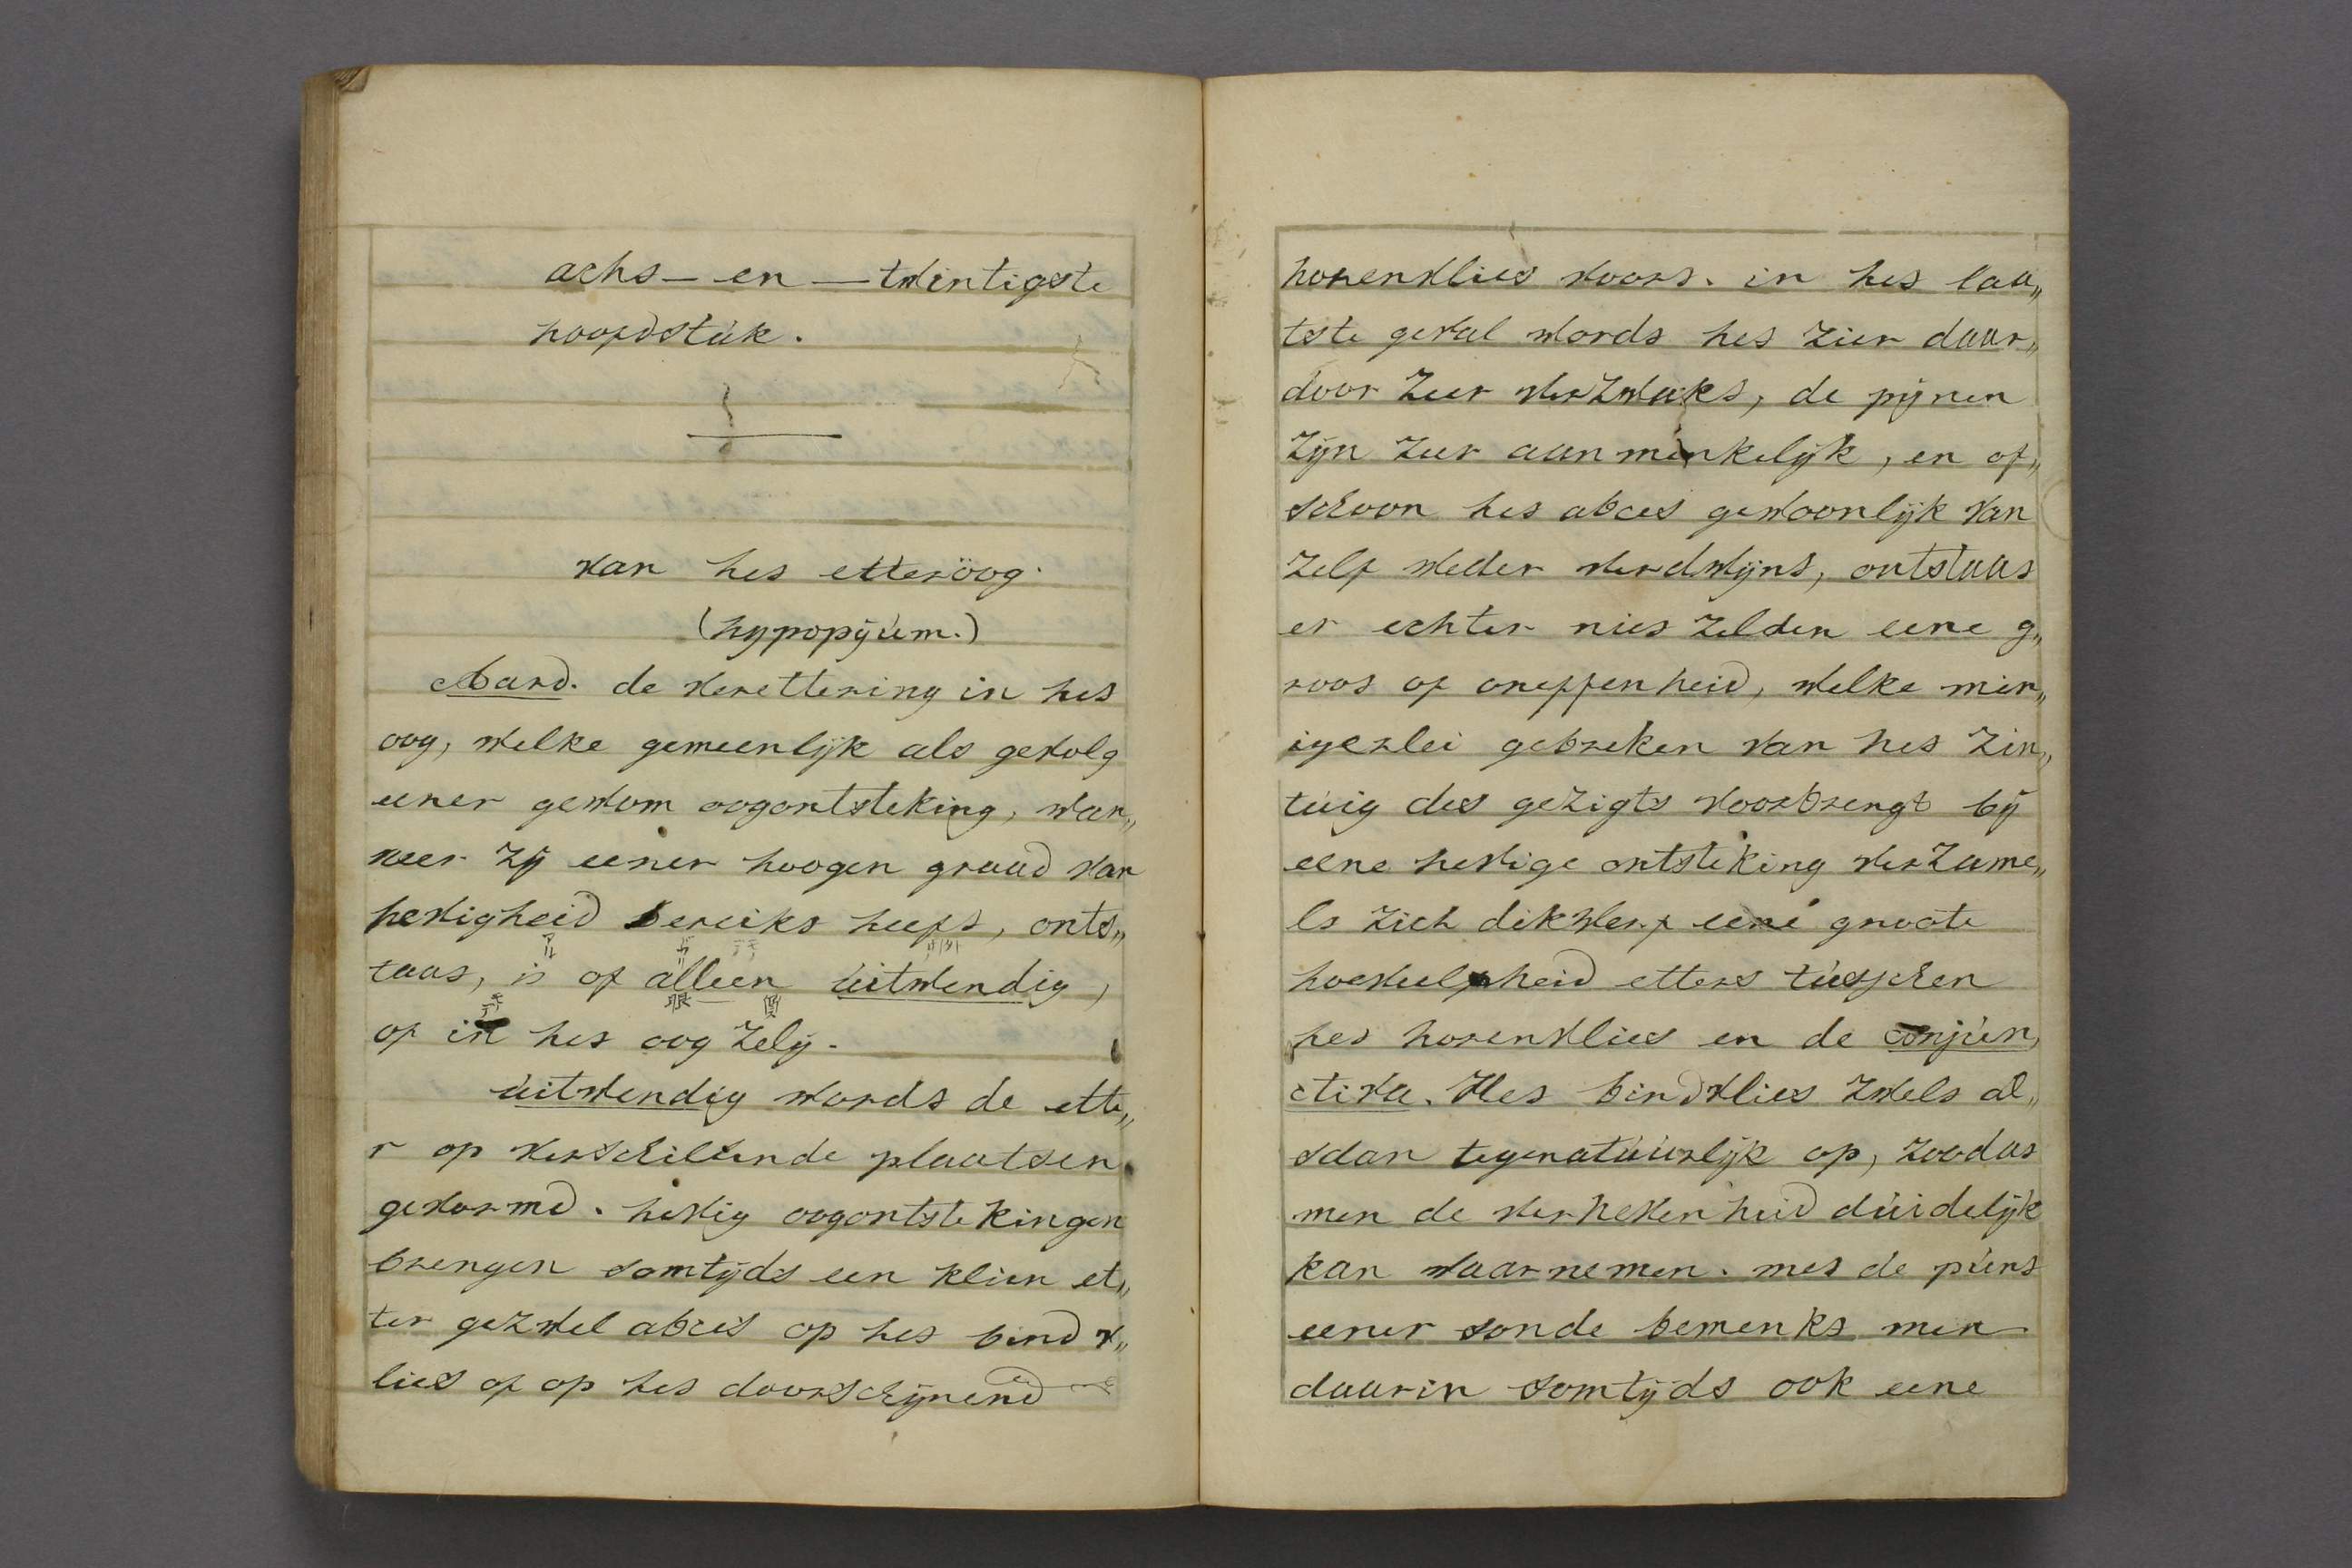 acht — en — twintigste
hoofdstúk.
van het etteröog.
(hypopÿúm.)
Aard. de verettering in het
oog, welke gemeenlÿk als gevolg
eener gewom oogontsteking, wan„
neer zÿ eener hoogen graad van
hevigheid bereikt heeft, onts„
taat, is of alleen úitwendig,
of in het oog zelf.
úitwendig wordt de ette„
r op verschillende plaatsen
gevormd. hevig oogontstekingen
brengen somtÿds een klien et„
ter gezwel abces op het bind v„
lies of op het doorschÿnend
horenvlies voort. in het laa„
tste geval wordt het zien daar„
door zeer verzwakt, de pÿnen
zÿn zeer aanmerkelÿk, en of„
schoon het abces gewoonlÿk van
zelf weder verdwÿnt, ontstaat
er echter niet zelden eene g„
root of oneffenheid, welke min„
igerlei gebreken van het zin„
túig des gezigts voortbrengt bÿ
eene hevige ontsteking verzame„
lt zich dikwerf eene groote
hoeveelheid etters tússchen
het horenvlies en de conjún„
ctiva. Het bindvlies zwelt al„
sdan tegenatúúrlÿk op, zoodat
men de verhevenheid dúidelÿk
kan waarnemen. met de púnt
eener sonde bemerkt men
daarin somtÿds ook eene